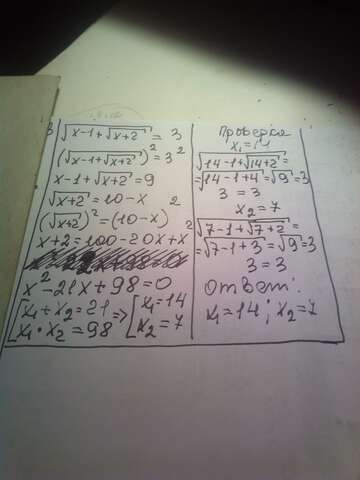 √(x-1+√(x+2)) = 3
(√(x-1+√(x+2)))² = 3²
x-1+√(x+2) = 9
√(x+2) = 10-x
(√(x+2))² = (10-x)²
x+2 = 100-20x+x²
x²-21x+98=0
[x₁+x₂=21 => [x₁=14
x₁·x₂=98 x₂=7
Проверка
x₁=14
√(14-1+√(14+2)) =
=√(14-1+4) = √9 = 3
3 = 3
x₂=7
√(7-1+√(7+2)) =
=√(7-1+3) = √9 = 3
3 = 3
Ответ:
x₁=14; x₂=7